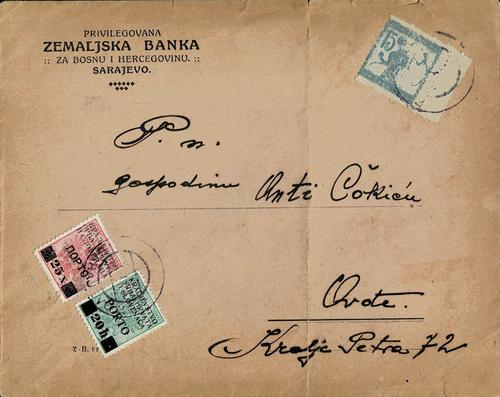 PRIVILEGOVANA
ZEMALJSKA BANKA
:: ZA BOSNU I HERCEGOVINU. ::
SARAJEVO.
15
P. n.
gospodinu Anti Čokiću
ПОРТО
25 X
PORTO
20 h
Ovde.
Kralja Petra 72
Z-B.